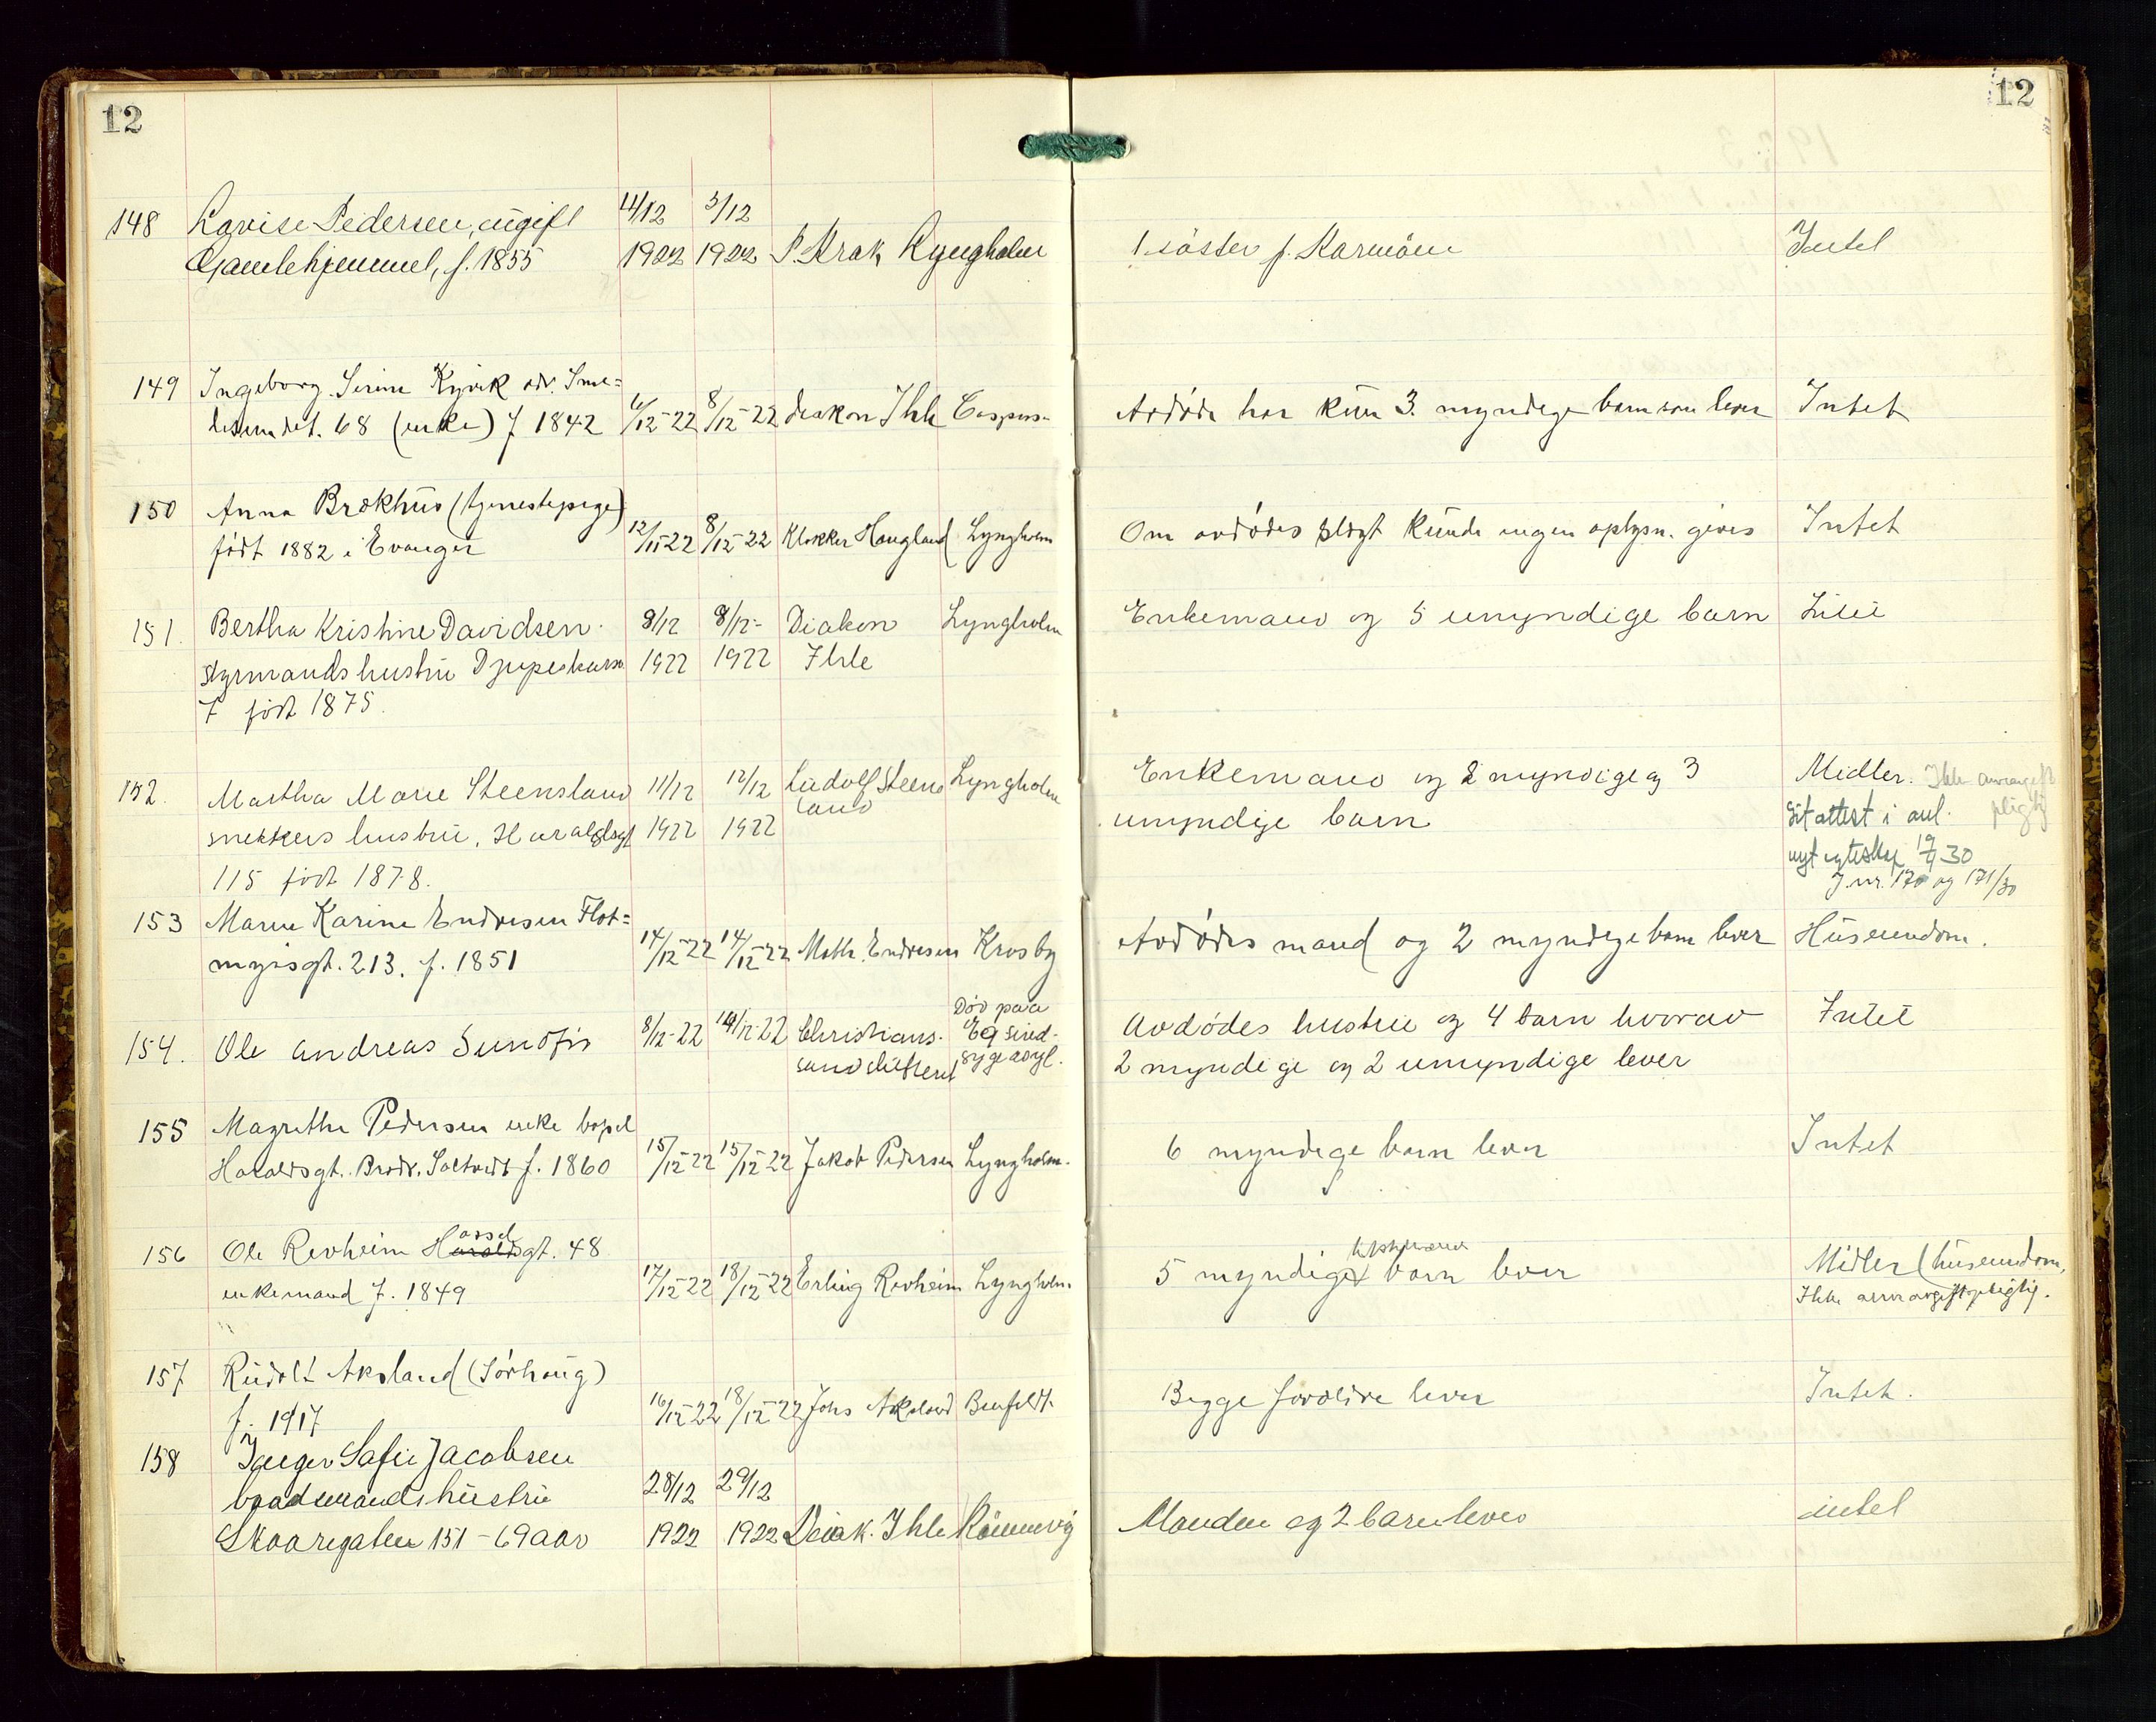 12
12
148 Lovise Pedersen, ugift 4/12 5/12
Gamlehjemmet, f. 1855 1922 1922 P. Krak Lyngholm 1 söster p. Karmöen Intet
149 Ingeborg Serine Kyvik adr. Sme=
68 (enke) f 1842 6/12-22 8/12-22 diakon Ihle Caspers. Avdöde har kun 3 myndige barn som lever Intet
150 Anna Brekhus (tjenestepige)
født 1882 i Evanger 12/11-22 8/12-22 Klokker Haugland Lyngholm Om avdödes slegt kunde ingen oplysn. gives Intet
151. Bertha Kristine Davidsen. 8/12 9/12- Diakon Lyngholm Enkemand og 5 umyndige barn Intet
styrmandshustru Djupeskarsv. 1922 1922 Ihle
7 född 1875.
152. Martha Marie Steensland 11/12 12/12 Ludolf Steens Lyngholm Enkemand og 2 myndige og 3 Midler. Ikke arveavgift
land pligtig
snekkers hustru, Haraldsgt 1922 1922 umyndige barn Git attest i anl.
115 född 1878. nyt egteskap 19/9 30
J.nr. 170 og 171/30
153 Maren Karine Endresen Flot=
myrsgt. 213. f. 1851 14/12-22 14/12-22 Math. Endresen Krosby Avdödes mand og 2 myndige barn lever Huseiendom.
154. Ole Andreas Sundför 8/12-22 14/12-22 Christians- Död paa Avdödes hustru og 4 barn hvorav Intet
sand skifteret Eg sind-
sygeasyl. 2 myndige og 2 umyndige lever
155 Magrethe Pedersen enke bopel
Haraldsgt. Brødr. Saltvedt f. 1860 15/12-22 15/12-22 Jakob Pedersen Lyngholm. 6 myndige barn lever Intet
156 Ole Revheim Haraldsgt. 48 assel
enkemand f. 1849 17/12-22 18/12-22 Erling Revheim Lyngholm. 5 myndige barn lever Midler (huseiendom,
Ikke arveavgiftspligtig.
157 Rudolf Aksland (Sörhaug)
f. 1917 16/12-22 18/12-22 Johs Aksland Benfeldt. Begge forældre lever Intet.
158 Inger Safie Jacobsen
baadsmandshustru 28/12 29/12
Skaaregaten 151 - 69 aar 1922 1922 Diak. Ihle Rönnevig Manden og 2 barn lever intet